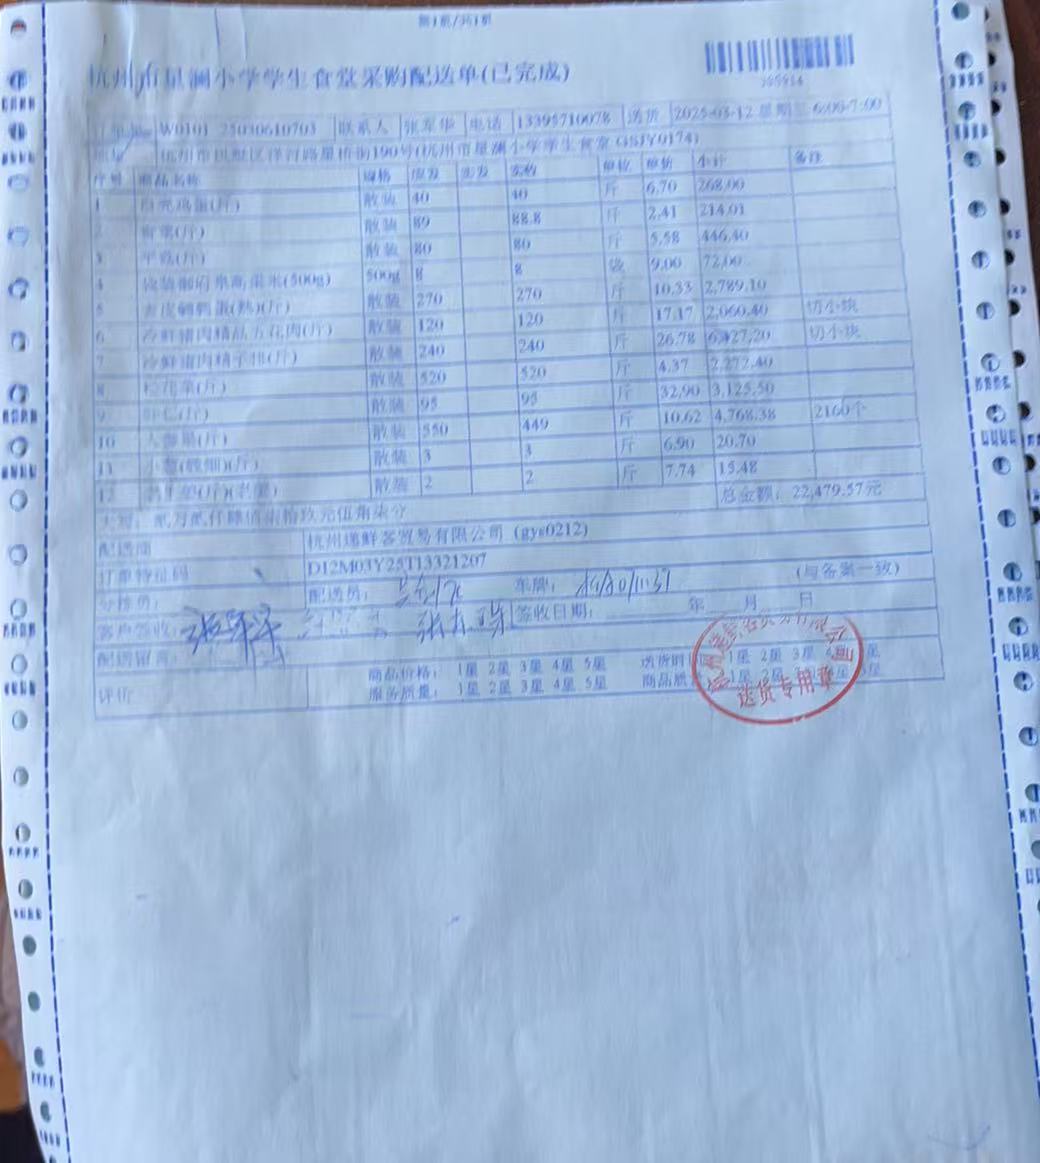 第1页/共1页
杭州市星澜小学学生食堂采购配送单(已完成)
W0101 25030610703 联系人 张军华 电话 13395710078 送货 2025-03-12 星期三 6:00-7:00
190号(杭州市星澜小学学生食堂 GSJY0174)
序号 商品名称 规格 应发 实发 实收 单位 单价 小计 备注
1 (斤) 散装 40 40 斤 6.70 268.00
2 (斤) 散装 89 88.8 斤 2.41 214.01
3 平菇(斤) 散装 80 80 斤 5.58 446.40
4 (500g) 500g 8 8 袋 9.00 72.00
5 去皮鹌鹑蛋(熟)(斤) 散装 270 270 斤 10.33 2,789.10
6 冷鲜猪肉精品五花肉(斤) 散装 120 120 斤 17.17 2,060.40 切小块
7 冷鲜猪肉精子排(斤) 散装 240 240 斤 26.78 6,427.20 切小块
8 松花菜(斤) 散装 520 520 斤 4.37 2,272.40
9 虾仁(斤) 散装 95 95 斤 32.90 3,125.50
10 人参果(斤) 散装 550 449 斤 10.62 4,768.38 2160个
11 小葱(细)(斤) 散装 3 3 斤 6.90 20.70
12 (斤)(老姜) 散装 2 2 斤 7.74 15.48
总金额: 22,479.57元
大写: 贰万贰仟肆佰柒拾玖元伍角柒分
配送商 杭州递鲜客贸易有限公司 (gys0212)
订单特征码 D12M03Y25T13321207
分拣员: 配送员: 车牌: (与备案一致)
客户签收: 签收日期: 年 月 日
评价 商品价格: 1星 2星 3星 4星 5星 送货时 1星 2星 3星 4星 5星
服务质量: 1星 2星 3星 4星 5星 商品质 1星 2星 3星 4星 5星
送货专用章